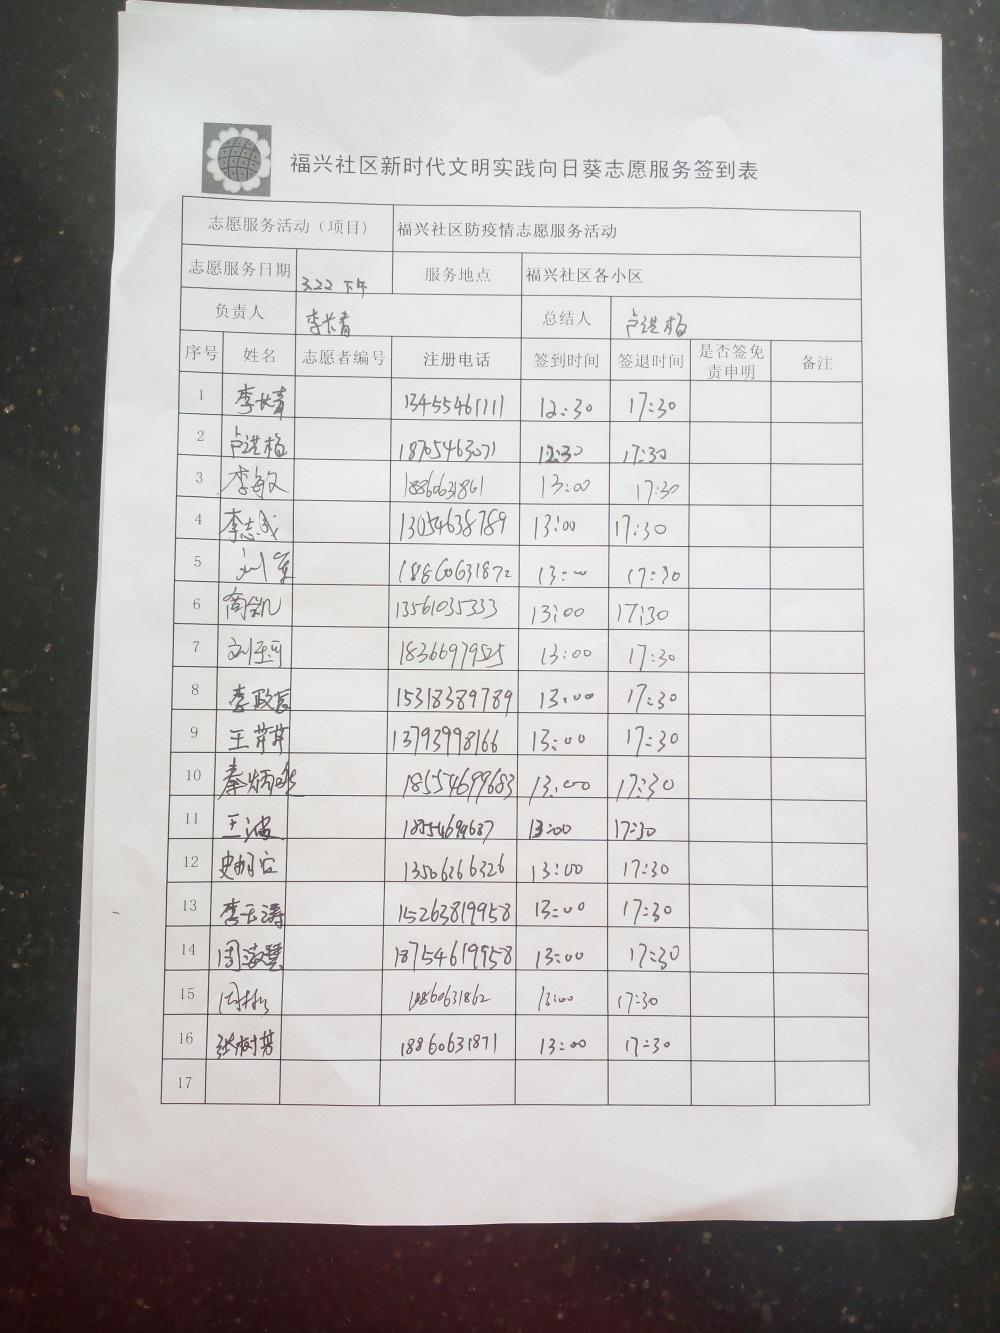 福兴社区新时代文明实践向日葵志愿服务签到表
志愿服务活动（项目） 福兴社区防疫情志愿服务活动
志愿服务日期 3.22 下午 服务地点 福兴社区各小区
负责人 李长青 总结人 卢洪梅
序号 姓名 志愿者编号 注册电话 签到时间 签退时间 是否签免责申明 备注
1 李长青 13455461111 12:30 17:30
2 卢洪梅 18705463071 12:30 17:30
3 李敏 18860631861 13:00 17:30
4 李志成 13054638789 13:00 17:30
5 刘军 18860631872 13:00 17:30
6 商凯 13561035333 13:00 17:30
7 18366979525 13:00 17:30
8 李政辰 15318389789 13:00 17:30
9 王芹芹 13793998166 13:00 17:30
10 秦炳 18554699683 13:00 17:30
11 王波 13:00 17:30
12 13506366326 13:00 17:30
13 李玉涛 15263819958 13:00 17:30
14 周海慧 18754619958 13:00 17:30
15 周 18860631862 13:00 17:30
16 张树芳 18860631871 13:00 17:30
17